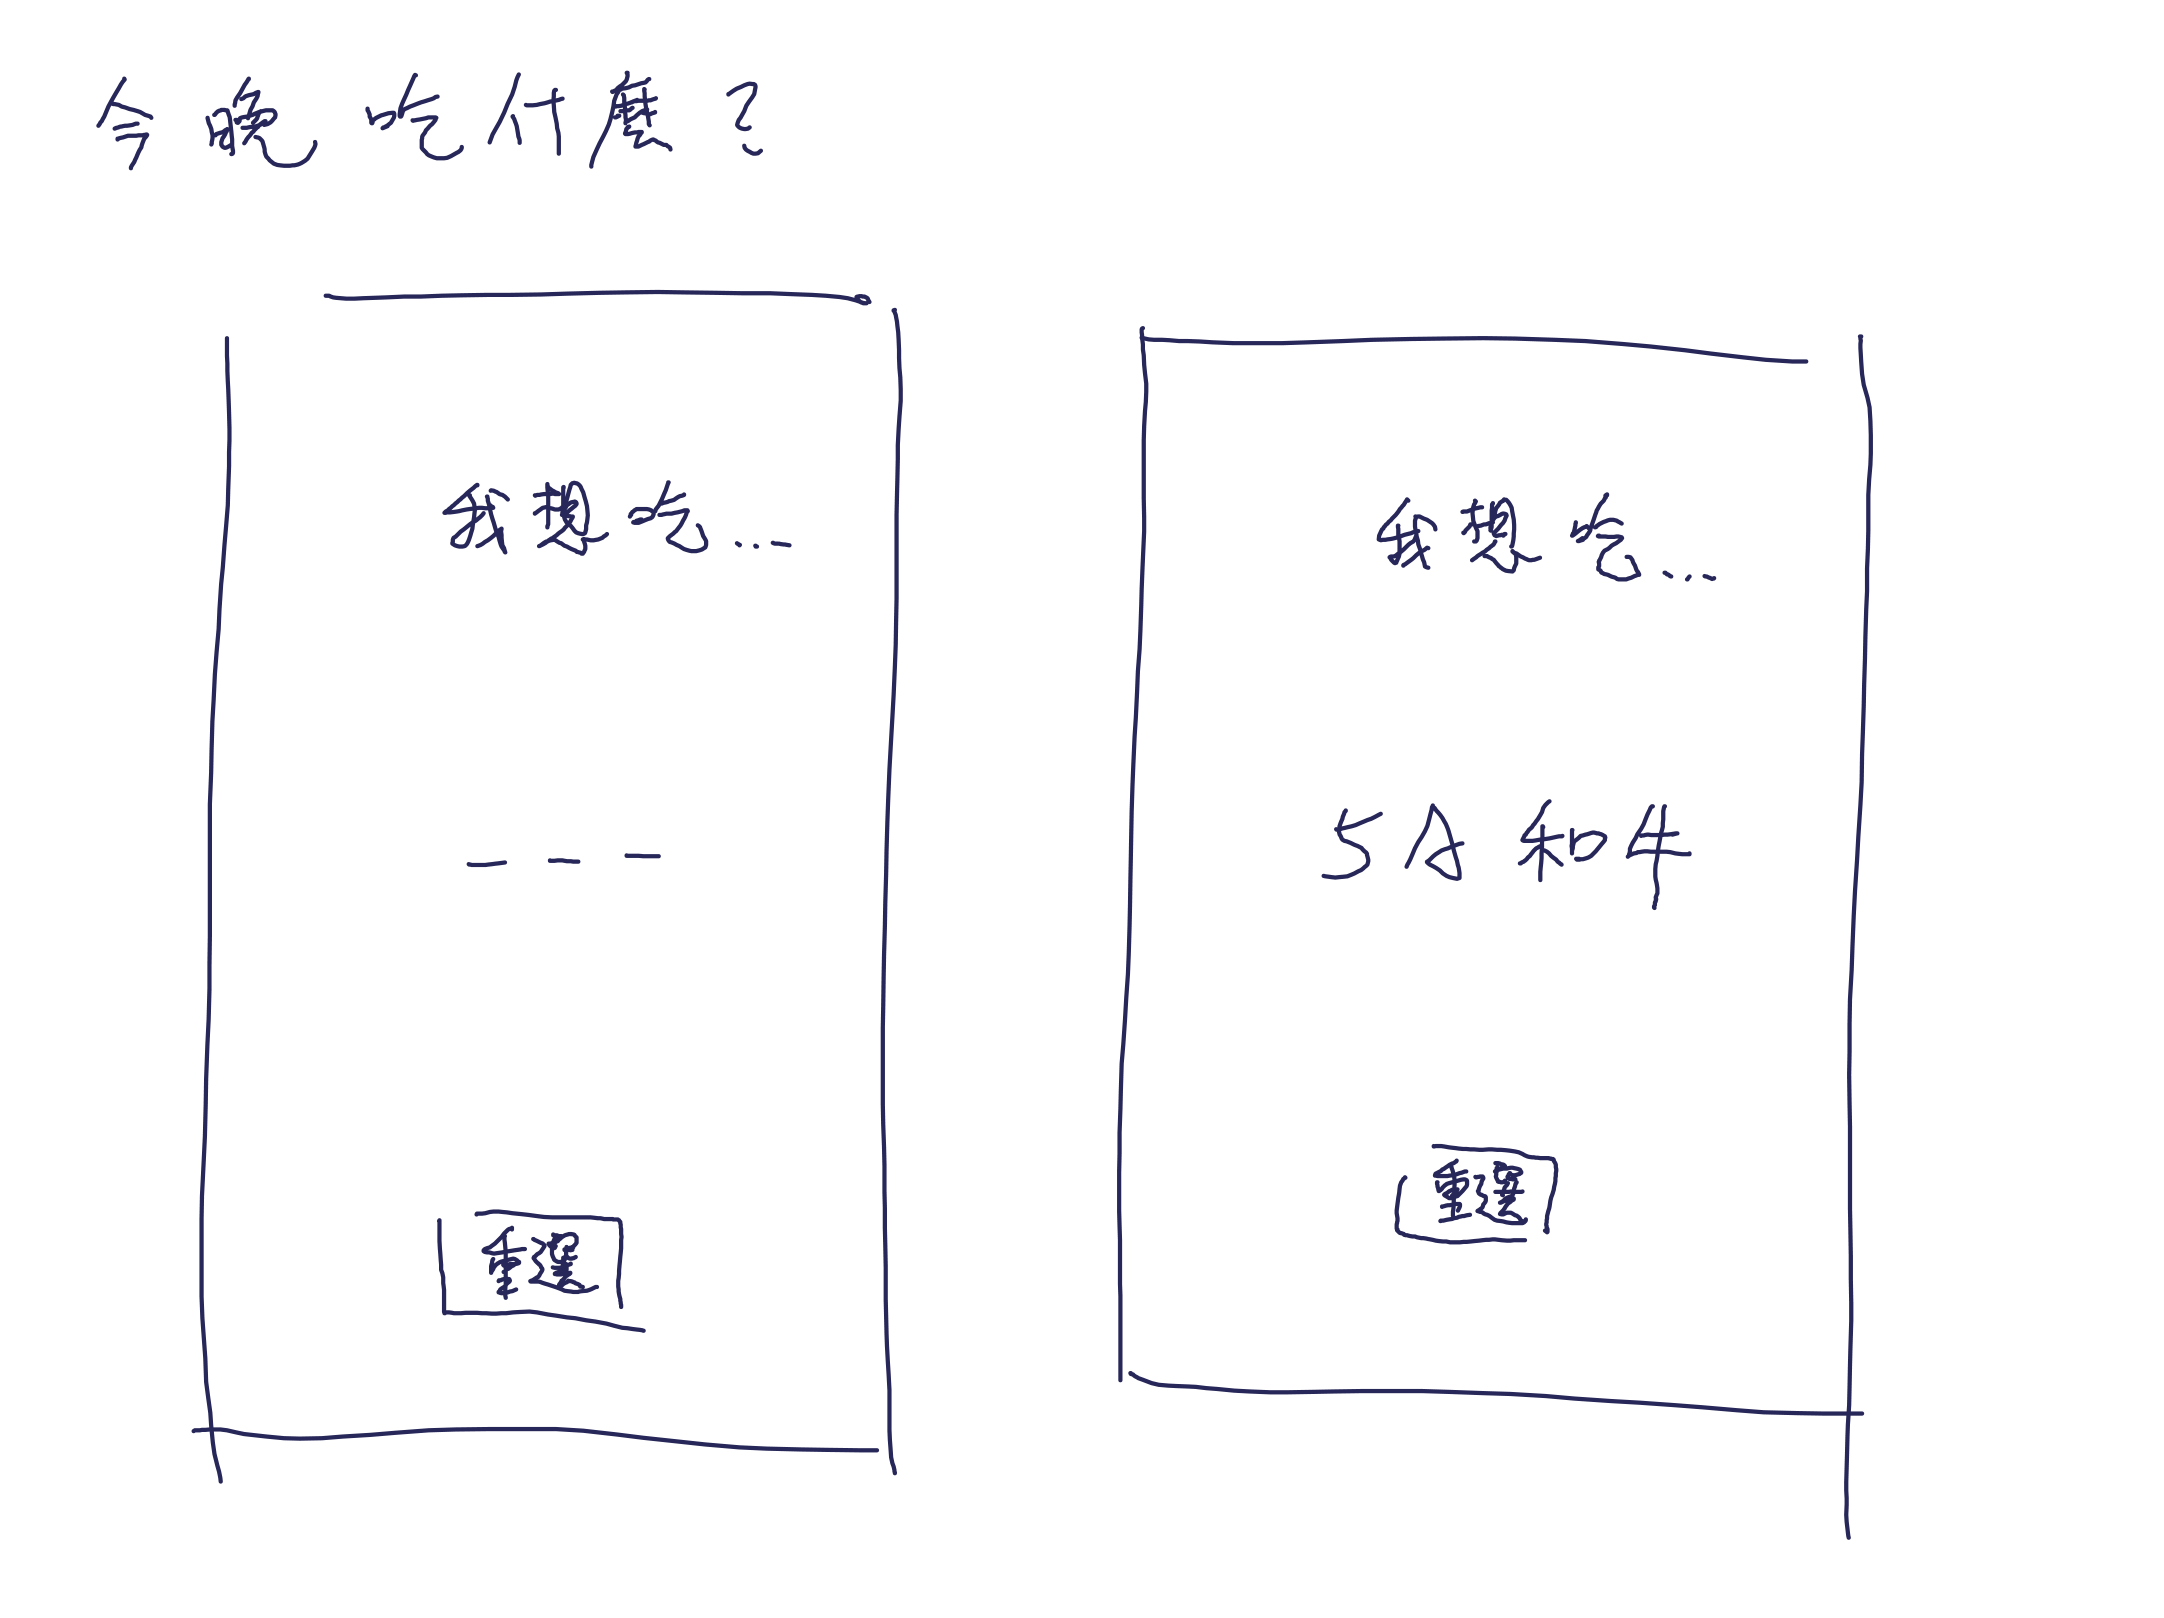 今晚吃什麼？
我想吃...
— — —
重選
我想吃...
5A和牛
重選